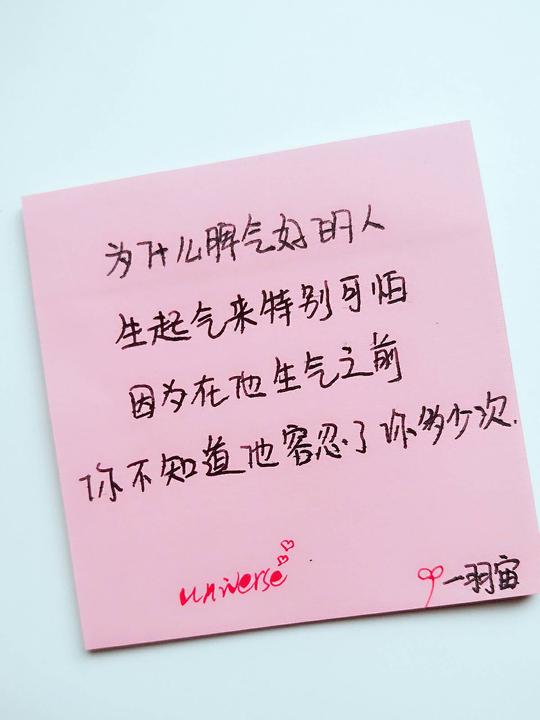 为什么脾气好的人
生起气来特别可怕
因为在他生气之前
你不知道他容忍了你多少次.
universe
一羽宙